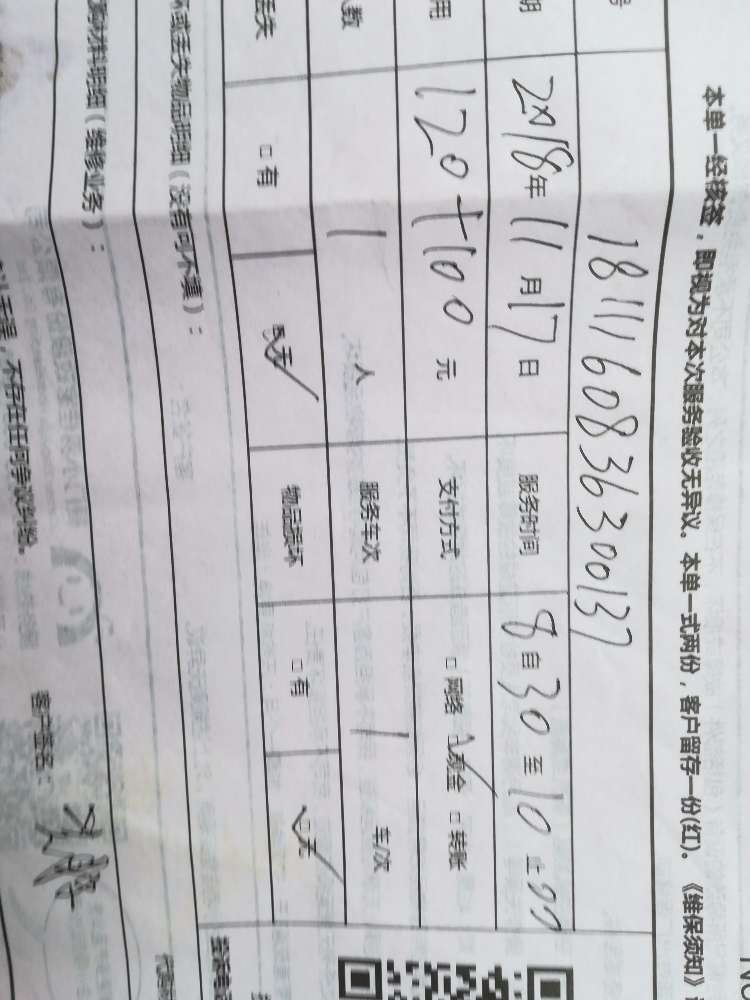 本单一经签签，即视为对本次服务验收无异议。本单一式两份，客户留存一份(红)。《维保须知》
号 1811160836300137
期 2018年11月17日 服务时间 8自30至10止00
用 120+100元 支付方式 □网络 ☑现金 □转账
人数 1人 服务车次 1车次
丢失 □有 ☑无 物品损坏 □有 ☑无
坏或丢失物品明细（没有可不填）：
材料明细（维修业务）：
不存在任何争议纠纷。 客户签名：